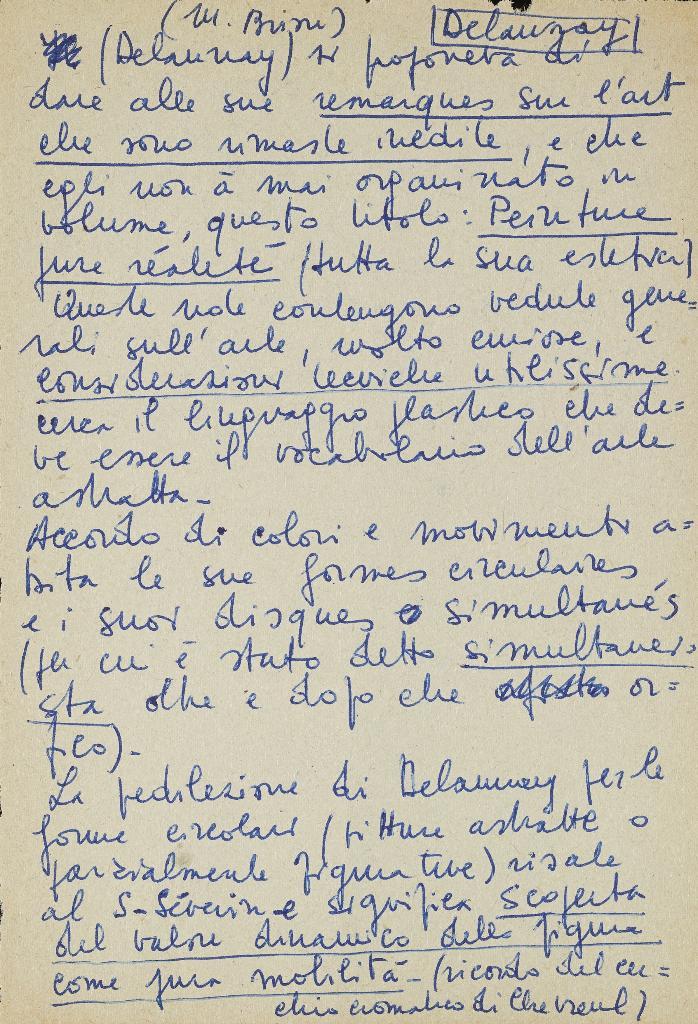 (M. Brion)
Delaunay
(Delaunay) si proponeva di
dare alle sue remarques sur l'art
che sono rimaste inedite, e che
egli non à mai organizzato in
volume, questo titolo: Peinture
pure réalité (tutta la sua estetica)
Queste note contengono vedute gene=
rali sull'arte, molto curiose, e
considerazioni tecniche utilissime
circa il linguaggio plastico che de=
ve essere il vocabolario dell'arte
astratta-
Accordo di colori e movimenti a-
bita le sue formes circulaires
e i suoi disques simultanés
(per cui è stato detto simultanei-
sta oltre e dopo che or=
fico).-
La predilezione di Delaunay per le
forme circolari (pitture astratte o
parzialmente figurative) risale
al S-Séverin-e significa scoperta
del valore dinamico della figura
come pura mobilità-(ricordo del cer=
chio cromatico di Chevreul)